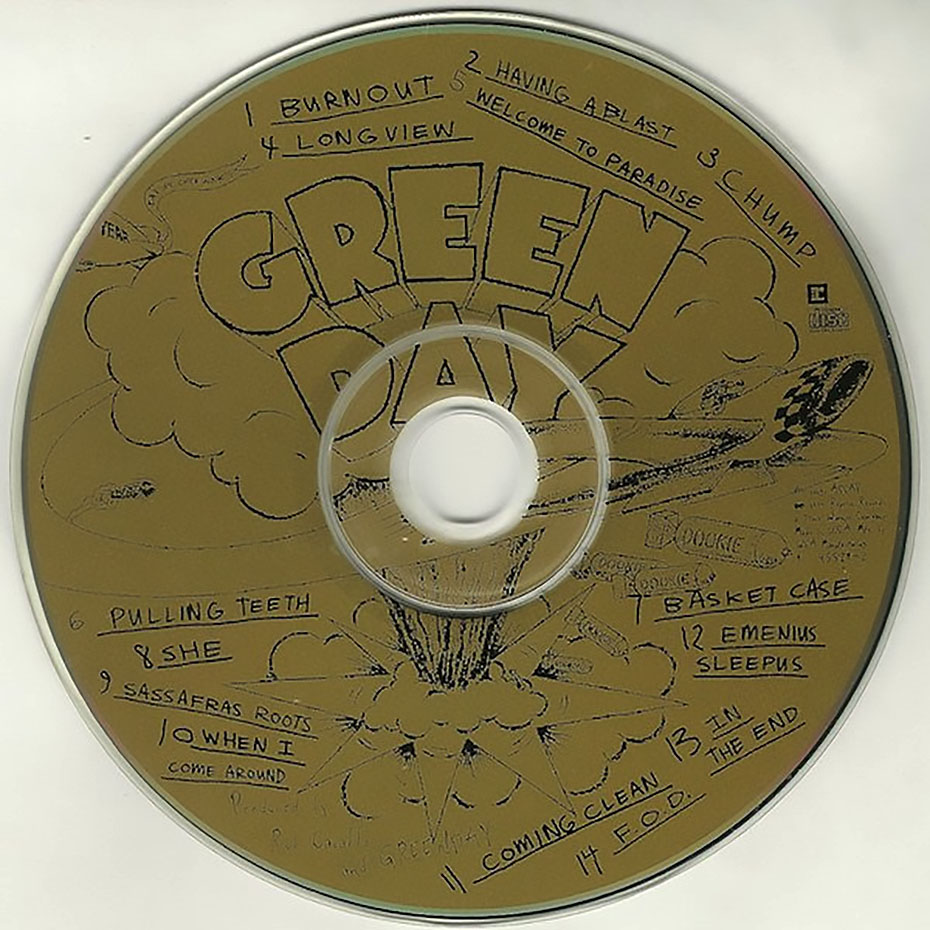 1 BURNOUT
2 HAVING A BLAST
3 CHUMP
4 LONGVIEW
5 WELCOME TO PARADISE
GREEN
DAY
FEAR
DISC
DOOKIE
DOOKIE
DOOKIE
6 PULLING TEETH
7 BASKET CASE
8 SHE
9 SASSAFRAS ROOTS
10 WHEN I
COME AROUND
12 EMENIUS
SLEEPUS
13 IN
THE END
11 COMING CLEAN
14 F.O.D.
Produced by
Rob Cavallo
and GREEN DAY